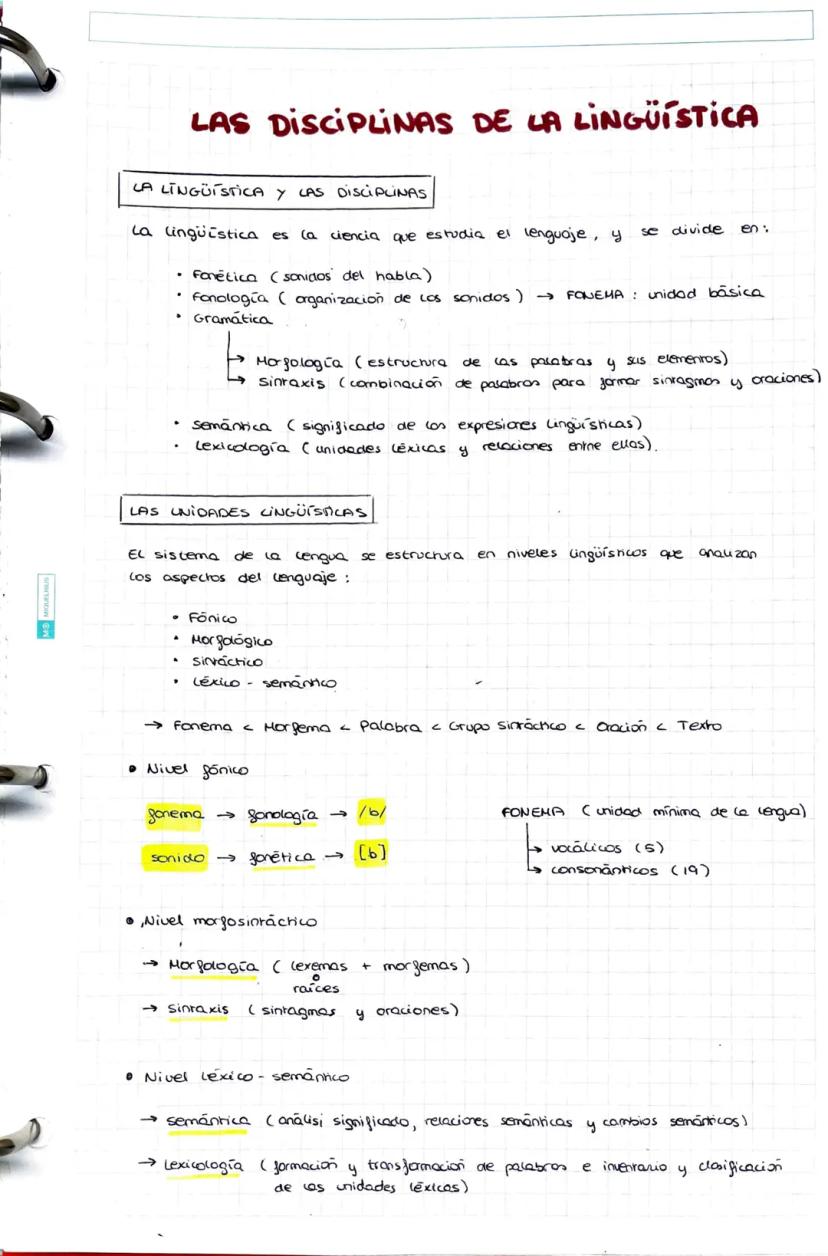 LAS DISCIPLINAS DE LA LINGÜÍSTICA
LA LINGÜÍSTICA Y LAS DISCIPLINAS
La lingüística es la ciencia que estudia el lenguaje, y se divide en:
• Fonética (sonidos del habla)
• Fonología (organización de los sonidos) → FONEMA: unidad básica
• Gramática
→ Morfología (estructura de las palabras y sus elementos)
→ Sintaxis (combinación de palabras para formar sintagmas y oraciones)
• Semántica (significado de los expresiones lingüísticas)
• Lexicología (unidades léxicas y relaciones entre ellas).
LAS UNIDADES LINGÜÍSTICAS
El sistema de la lengua se estructura en niveles lingüísticos que analizan
los aspectos del lenguaje:
• Fónico
• Morfológico
• Sintáctico
• Léxico - semántico
→ Fonema < Morfema < Palabra < Grupo Sintáctico < Oración < Texto
• Nivel fónico
fonema → fonología → /b/
sonido → fonética → [b]
FONEMA (unidad mínima de la lengua)
→ vocálicos (5)
→ consonánticos (19)
• Nivel morfosintáctico
→ Morfología (lexemas + morfemas)
o
raíces
→ Sintaxis (sintagmas y oraciones)
• Nivel Léxico - semántico
→ Semántica (análisi significado, relaciones semánticas y cambios semánticos)
→ Lexicología (formación y transformación de palabras e inventario y clasificación
de las unidades léxicas)
MIQUELRIUS